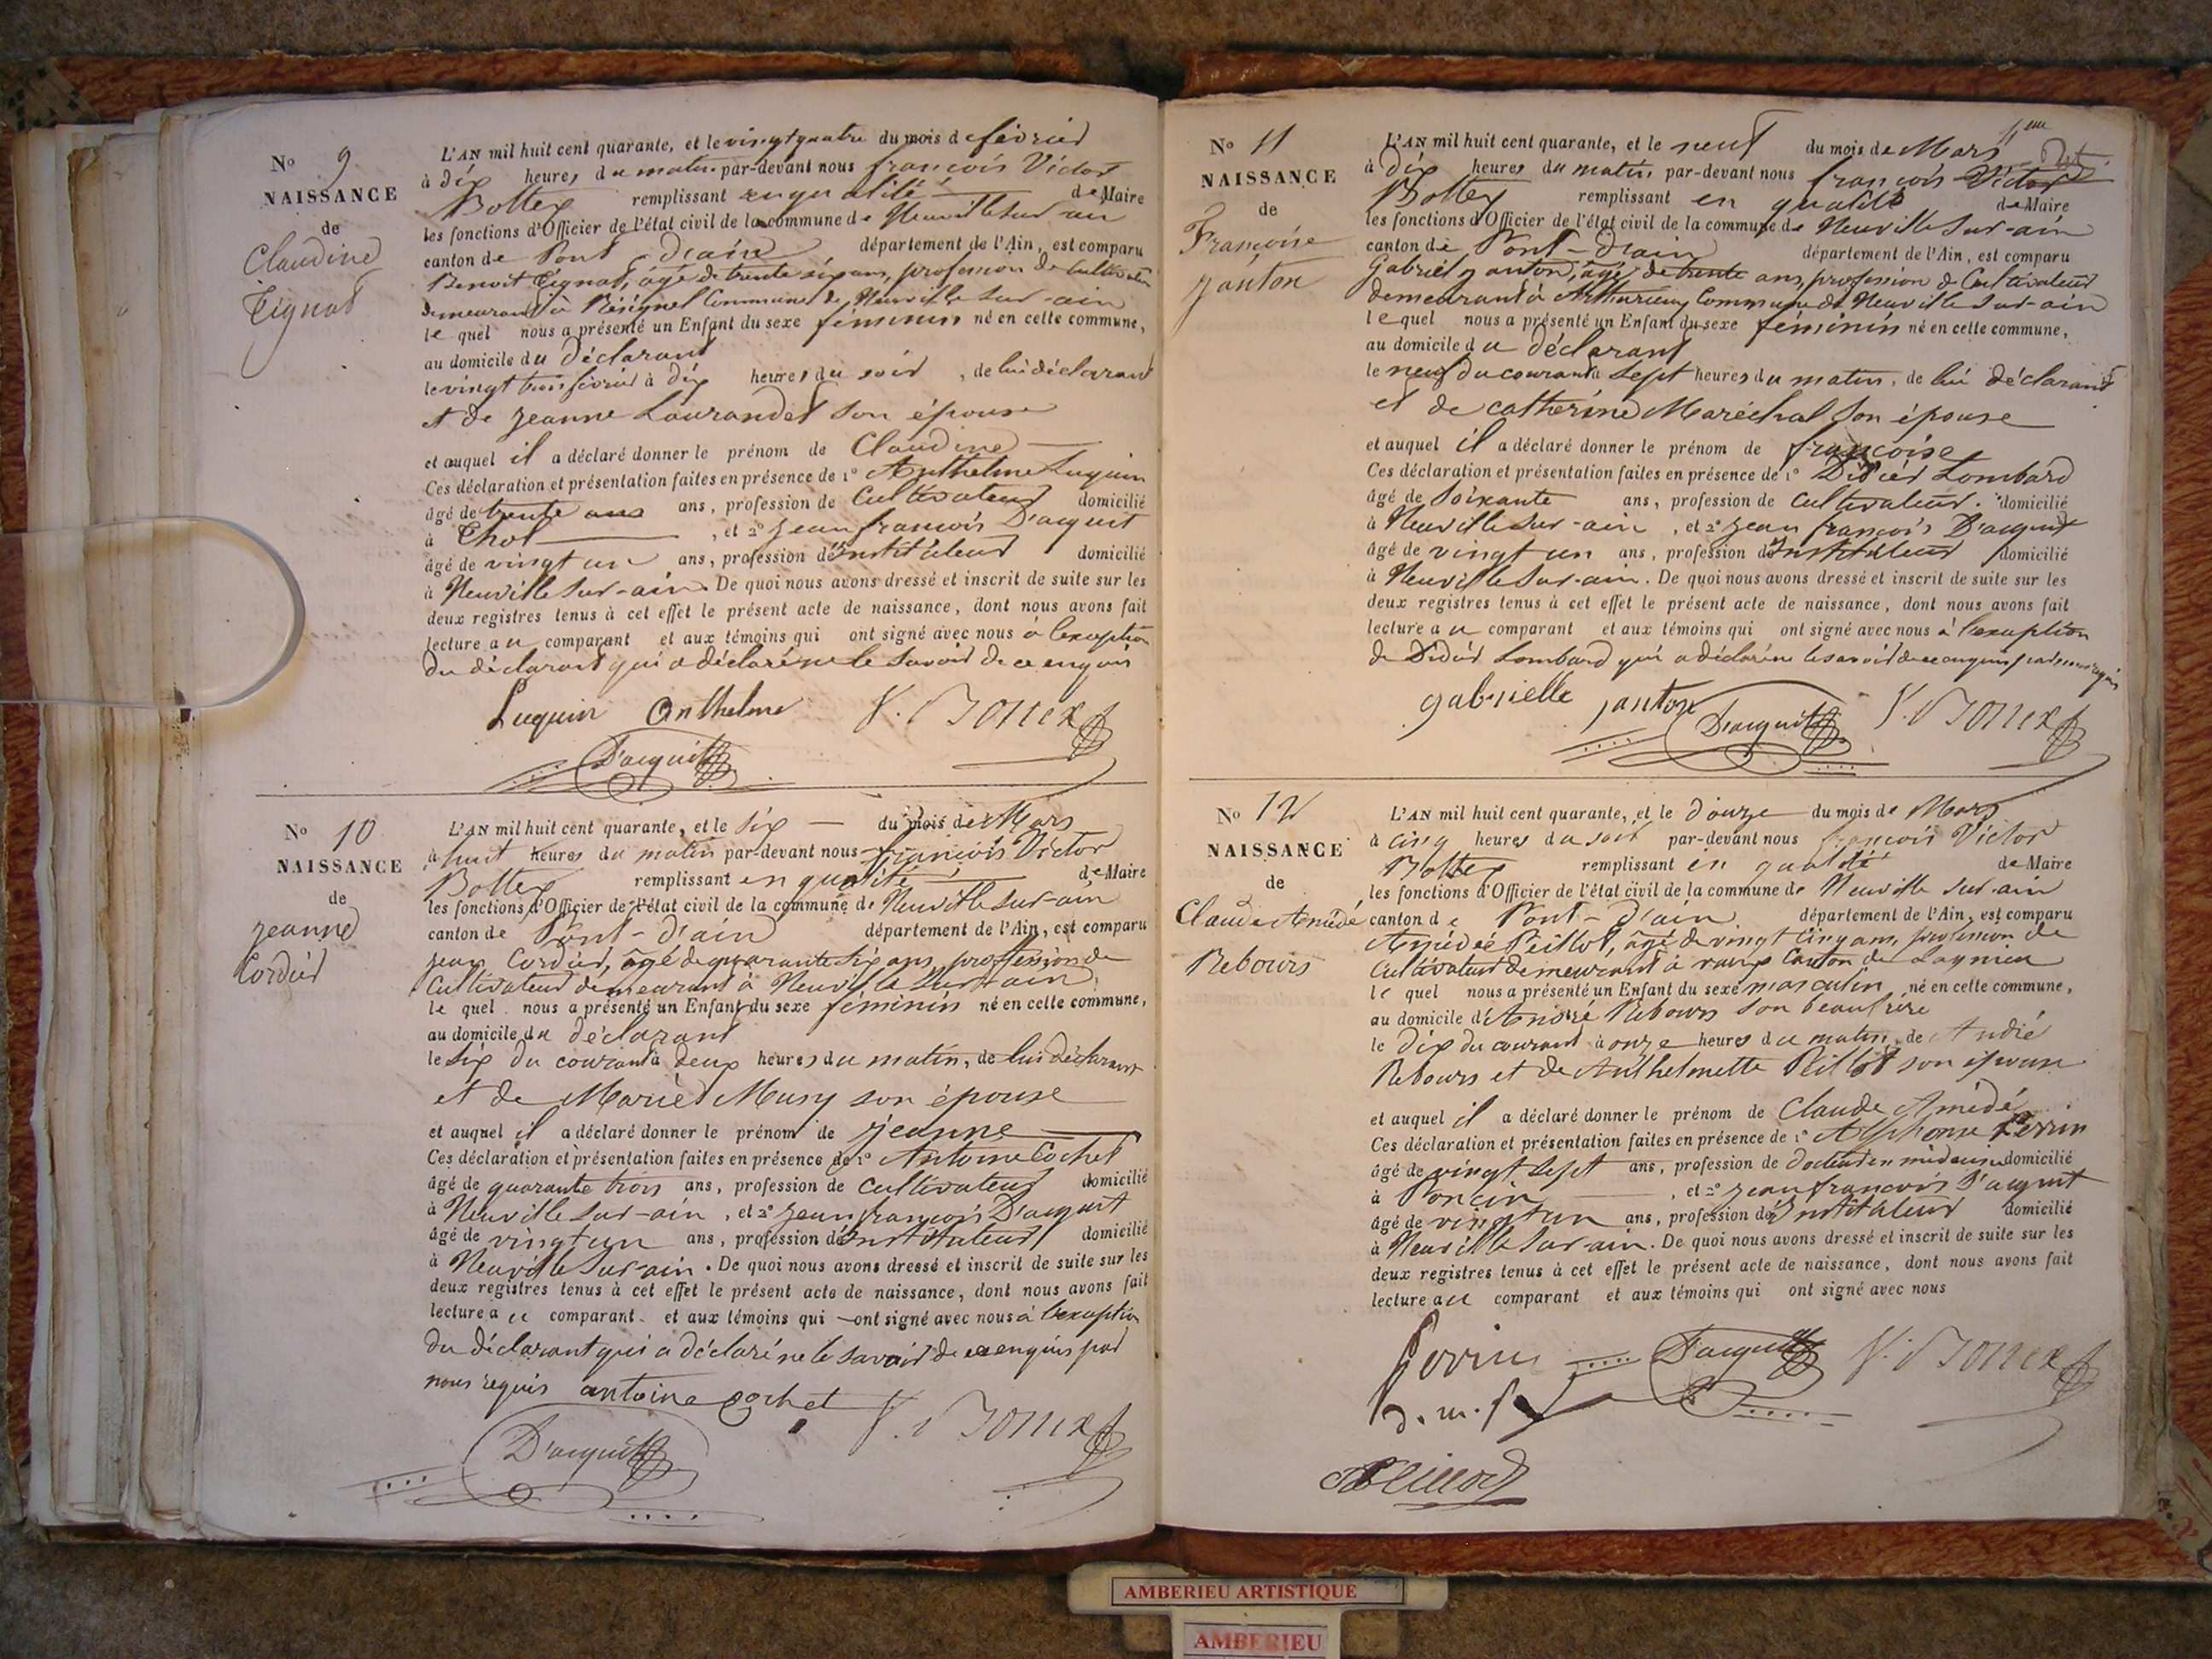 N° 9
NAISSANCE
de
Claudine
Tignat
L'AN mil huit cent quarante, et le vingt quatre du mois de février
à dix heures du matin par-devant nous françois Victor
Bottex remplissant en qualité de Maire
les fonctions d'Officier de l'état civil de la commune de Neuville sur-ain
canton de Pont-d'ain département de l'Ain, est comparu
Benoit Tignat, âgé de trente six ans, profession de Cultivateur
demeurant à Résignel Commune de Neuville sur-ain
le quel nous a présenté un Enfant du sexe féminin né en cette commune,
au domicile du déclarant
le vingt trois février à dix heures du soir, de lui déclarant
et de jeanne Laurandet son épouse
et auquel il a déclaré donner le prénom de Claudine
Ces déclaration et présentation faites en présence de 1° Anthelme Luquin
âgé de trente ans ans, profession de Cultivateur domicilié
à Thol, et 2° jean françois D'acquit
âgé de vingt un ans, profession d'instituteur domicilié
à Neuville sur-ain. De quoi nous avons dressé et inscrit de suite sur les
deux registres tenus à cet effet le présent acte de naissance, dont nous avons fait
lecture au comparant et aux témoins qui ont signé avec nous à l'exception
du déclarant qui a déclaré ne le savoir de ce enquis
Luquin Anthelme V. Bottex
D'acquit
N° 10
NAISSANCE
de
jeanne
Cordier
L'AN mil huit cent quarante, et le six du mois de Mars
à huit heures du matin par-devant nous françois Victor
Bottex remplissant en qualité de Maire
les fonctions d'Officier de l'état civil de la commune de Neuville sur-ain
canton de Pont-d'ain département de l'Ain, est comparu
jean Cordier, âgé de quarante six ans, proffession de
Cultivateur demeurant à Neuville sur-ain,
le quel nous a présenté un Enfant du sexe féminin né en cette commune,
au domicile du déclarant
le six du courant à deux heures du matin, de lui déclarant
et de Marie Musy son épouse
et auquel il a déclaré donner le prénom de jeanne
Ces déclaration et présentation faites en présence de 1° Antoine Cochet
âgé de quarante trois ans, profession de Cultivateur domicilié
à Neuville sur-ain, et 2° jean françois D'acquit
âgé de vingt un ans, profession d'instituteur domicilié
à Neuville sur-ain. De quoi nous avons dressé et inscrit de suite sur les
deux registres tenus à cet effet le présent acte de naissance, dont nous avons fait
lecture au comparant et aux témoins qui ont signé avec nous à l'exception
du déclarant qui a déclaré ne le savoir de ce enquis par
nous requis antoine cochet V. Bottex
D'acquit
N° 11
NAISSANCE
de
Françoise
janton
L'AN mil huit cent quarante, et le neuf du mois de Mars
à dix heures du matin par-devant nous françois Victor
Bottex remplissant en qualité de Maire
les fonctions d'Officier de l'état civil de la commune de Neuville sur-ain
canton de Pont-d'ain département de l'Ain, est comparu
Gabriel janton, âgé de trente ans, profession de Cultivateur
demeurant à Arthurieux Commune de Neuville sur-ain
le quel nous a présenté un Enfant du sexe féminin né en cette commune,
au domicile du déclarant
le neuf du courant à sept heures du matin, de lui déclarant
et de catherine Maréchal son épouse
et auquel il a déclaré donner le prénom de françoise
Ces déclaration et présentation faites en présence de 1° Didier Lombard
âgé de soixante ans, profession de cultivateur domicilié
à Neuville sur-ain, et 2° jean françois D'acquit
âgé de vingt un ans, profession d'instituteur domicilié
à Neuville sur-ain. De quoi nous avons dressé et inscrit de suite sur les
deux registres tenus à cet effet le présent acte de naissance, dont nous avons fait
lecture au comparant et aux témoins qui ont signé avec nous à l'exception
de Didier Lombard qui a déclaré ne le savoir de ce enquis par nous requis
gabrielle janton D'acquit V. Bottex
N° 12
NAISSANCE
de
Claude Amédé
Rebours
L'AN mil huit cent quarante, et le douze du mois de Mars
à cinq heures du soir par-devant nous françois Victor
Bottex remplissant en qualité de Maire
les fonctions d'Officier de l'état civil de la commune de Neuville sur-ain
canton de Pont-d'ain département de l'Ain, est comparu
Amédée Peillot, âgé de vingt cinq ans, profession de
Cultivateur demeurant à vaux Canton de Lagnieu
le quel nous a présenté un Enfant du sexe masculin né en cette commune,
au domicile d'André Rebours son beau frère
le dix du courant à onze heures du matin, de André
Rebours et de Anthelmette Peillot son épouse
et auquel il a déclaré donner le prénom de Claude Amédé
Ces déclaration et présentation faites en présence de 1° Alphonse Perrin
âgé de vingt sept ans, profession de docteur en médecine domicilié
à Poncin, et 2° jean françois D'acquit
âgé de vingt un ans, profession d'instituteur domicilié
à Neuville sur-ain. De quoi nous avons dressé et inscrit de suite sur les
deux registres tenus à cet effet le présent acte de naissance, dont nous avons fait
lecture au comparant et aux témoins qui ont signé avec nous
Perrin D'acquit V. Bottex
d. m. p
Peillod
AMBERIEU ARTISTIQUE
AMBERIEU